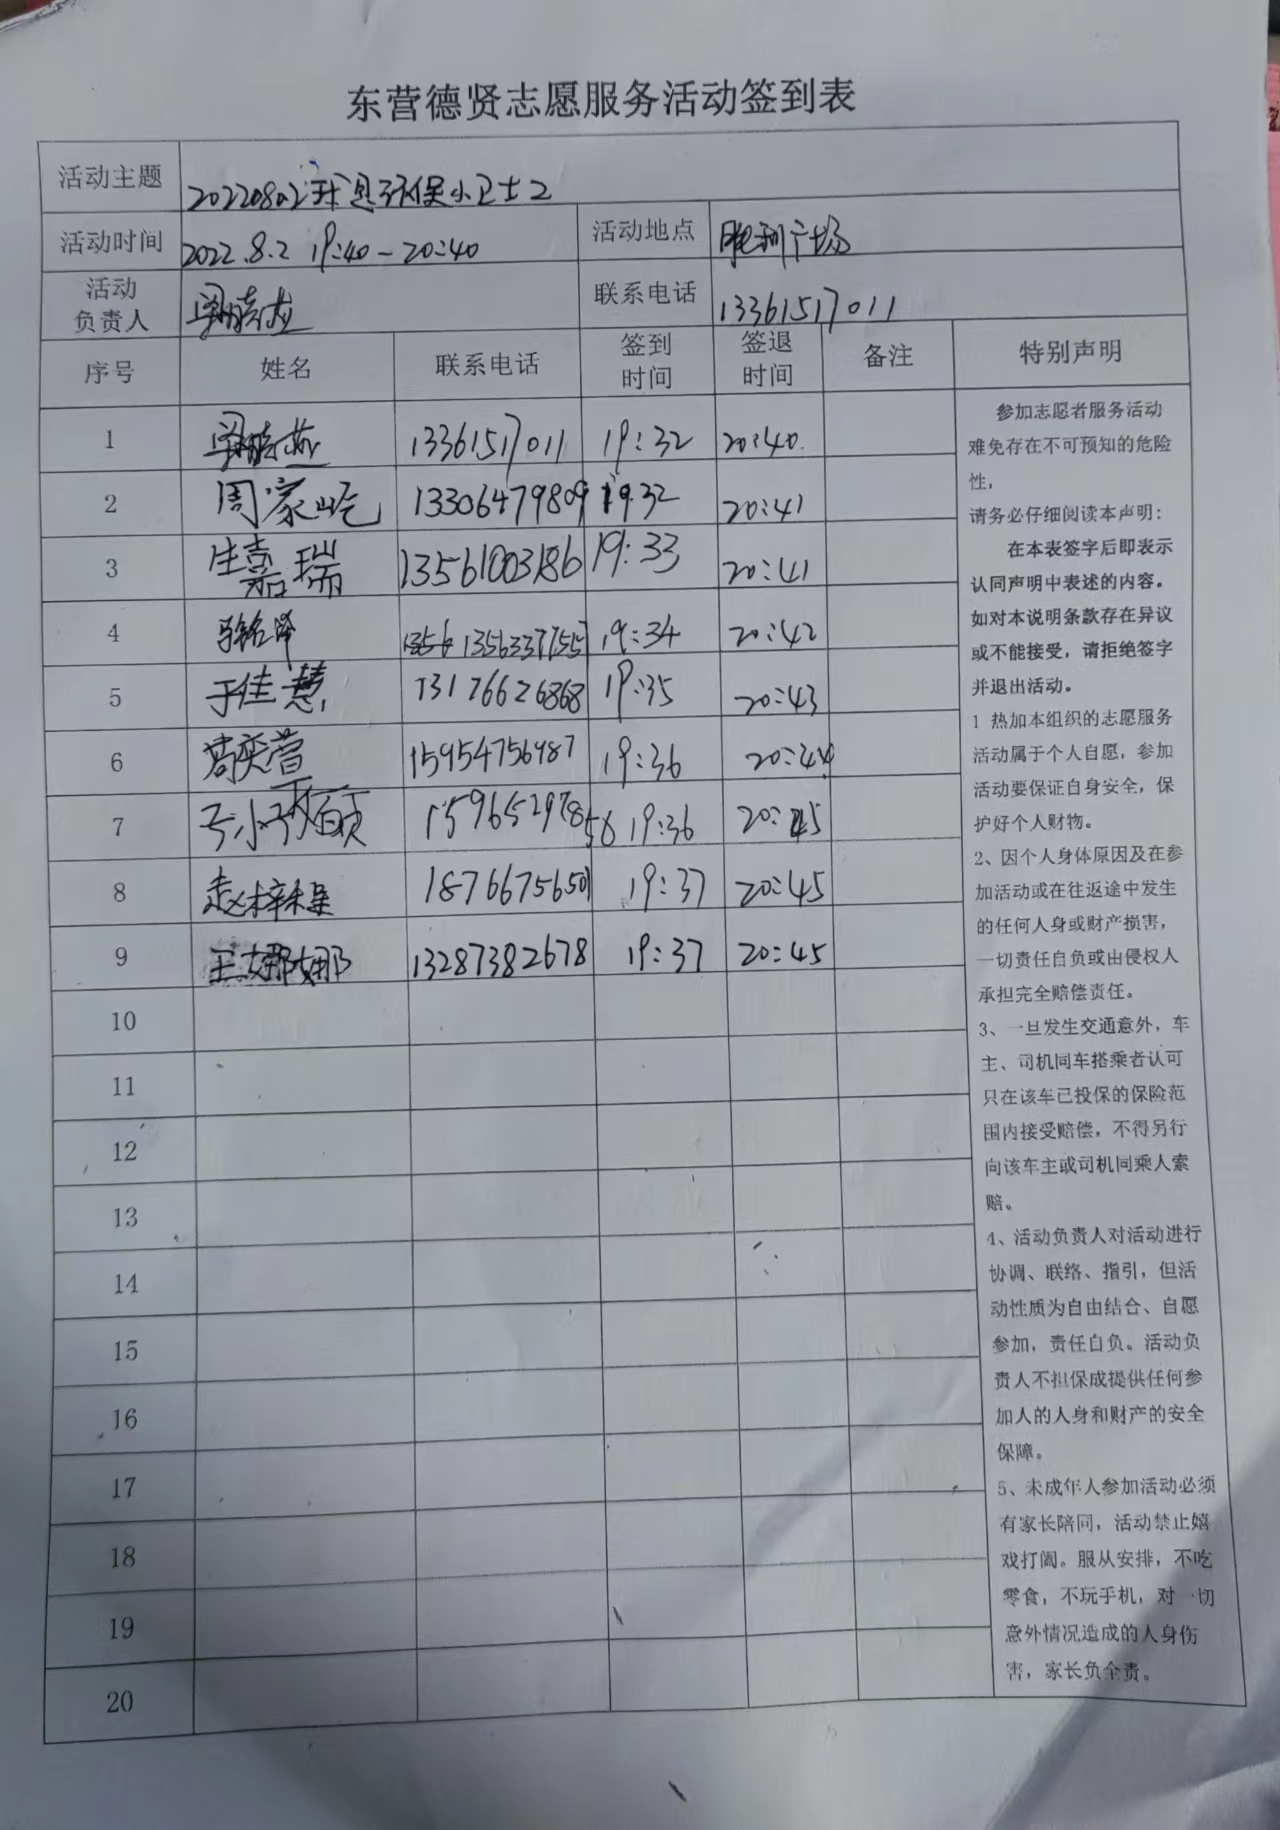 东营德贤志愿服务活动签到表
活动主题 20220802我是环保小卫士2
活动时间 2022.8.2 19:40-20:40 活动地点 胜利广场
活动负责人 联系电话 13361517011
序号 姓名 联系电话 签到时间 签退时间 备注 特别声明
1 13361517011 19:32 20:40
2 周家屹 13306479809 19:32 20:41
3 生嘉瑞 13561003186 19:33 20:41
4 19:34 20:42
5 于佳慧 13176626868 19:35 20:43
6 15954756987 19:36 20:44
7 15965297858 19:36 20:45
8 18766756501 19:37 20:45
9 王娜娜 13287382678 19:37 20:45
10
11
12
13
14
15
16
17
18
19
20
参加志愿者服务活动
难免存在不可预知的危险
性，
请务必仔细阅读本声明：
在本表签字后即表示
认同声明中表述的内容。
如对本说明条款存在异议
或不能接受，请拒绝签字
并退出活动。
1 热加本组织的志愿服务
活动属于个人自愿，参加
活动要保证自身安全，保
护好个人财物。
2、因个人身体原因及在参
加活动或在往返途中发生
的任何人身或财产损害，
一切责任自负或出侵权人
承担完全赔偿责任。
3、一旦发生交通意外，车
主、司机同车搭乘者认可
只在该车已投保的保险范
围内接受赔偿，不得另行
向该车主或司机同乘人索
赔。
4、活动负责人对活动进行
协调、联络、指引，但活
动性质为自由结合、自愿
参加，责任自负。活动负
责人不担保成提供任何参
加人的人身和财产的安全
保障。
5、未成年人参加活动必须
有家长陪同，活动禁止嬉
戏打闹。服从安排，不吃
零食，不玩手机，对一切
意外情况造成的人身伤
害，家长负全责。